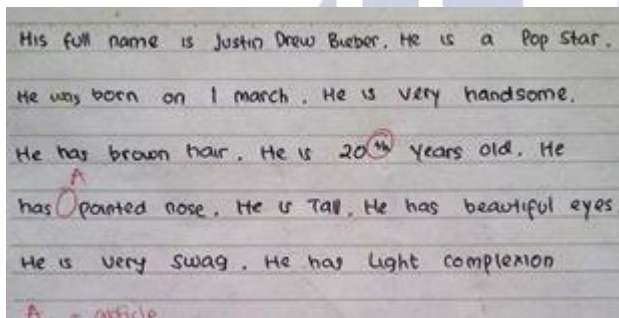 His full name is Justin Drew Bieber. He is a Pop Star.
He was born on 1 march. He is very handsome.
He has brown hair. He is 20th years old. He
A
has pointed nose. He is Tall. He has beautiful eyes
He is very swag. He has light complexion
A - article